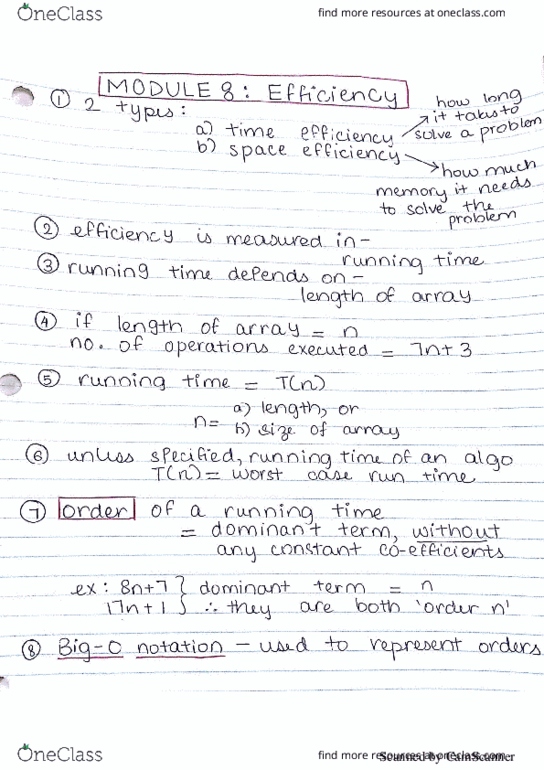 OneClass
find more resources at oneclass.com
MODULE 8: Efficiency
① 2 types:
a) time efficiency → how long it takes to solve a problem
b) space efficiency → how much memory it needs to solve the problem
② efficiency is measured in-
running time
③ running time depends on-
length of array
④ if length of array = n
no. of operations executed = 7n+3
⑤ running time = T(n)
n= a) length, or
b) size of array
⑥ unless specified, running time of an algo
T(n) = worst case run time
⑦ order of a running time
= dominant term, without
any constant co-efficients
ex: 8n+7 } dominant term = n
17n+1 } ∴ they are both 'order n'
⑧ Big-O notation - used to represent orders
OneClass
find more resources at oneclass.com
Scanned by CamScanner